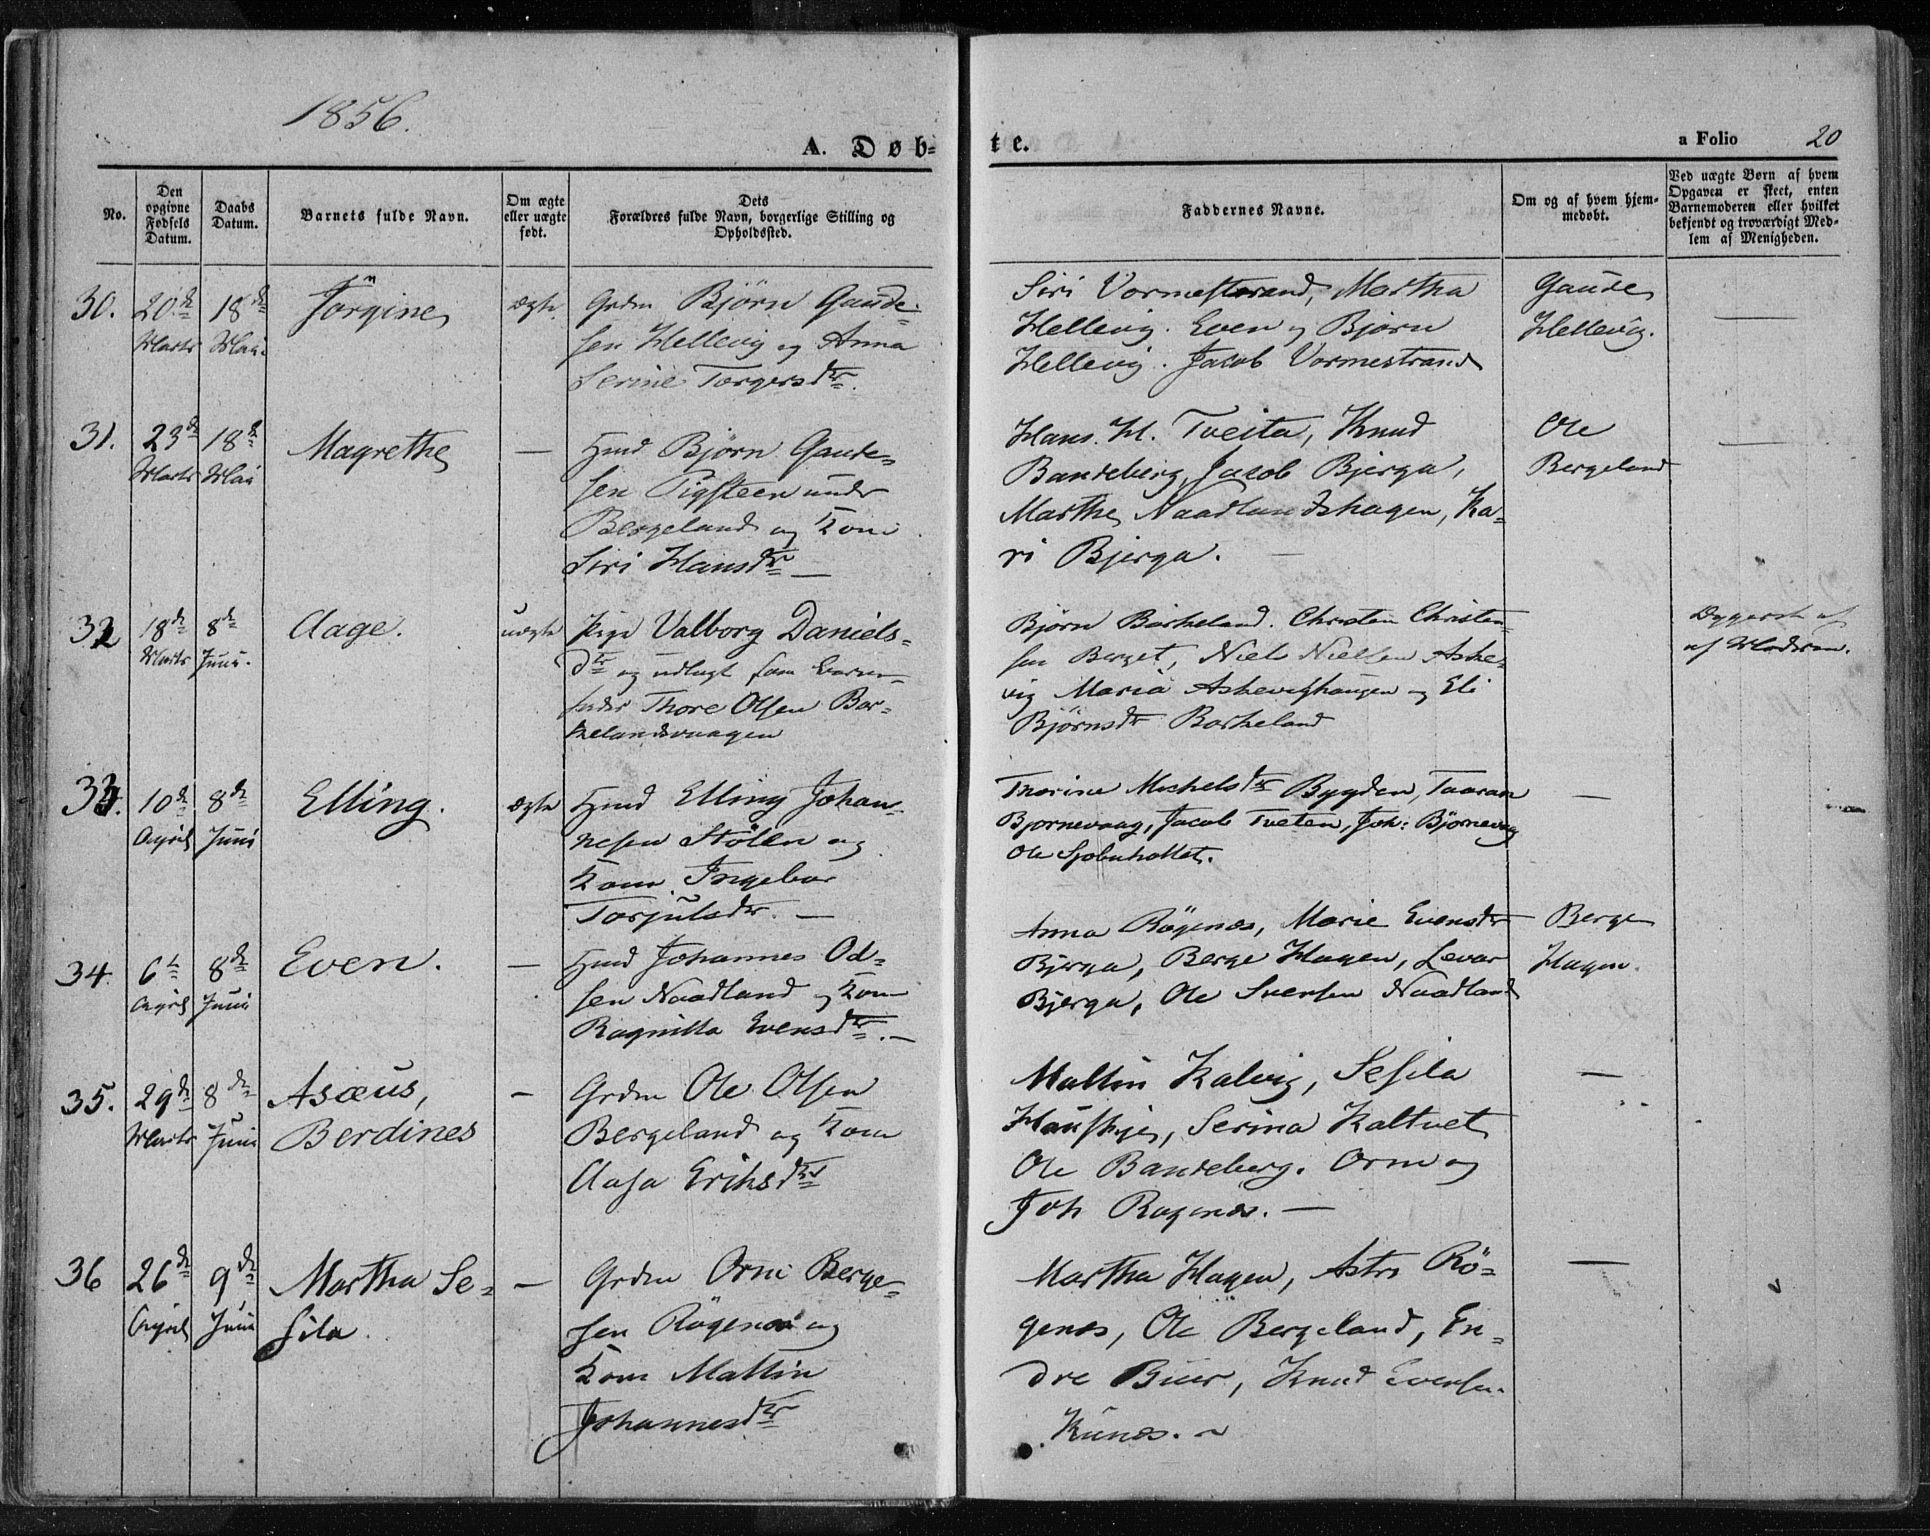 1856.
A. Døb-
te.
a Folio 20
No.
Den
opgivne
Fødsels
Datum.
Daabs
Datum.
Barnets fulde Navn.
Om ægte
eller uægte
født.
Dets
Forældres fulde Navn, borgerlige Stilling og
Opholdssted.
Faddernes Navne.
Om og af hvem hjem-
medøbt.
Ved uægte Børn af hvem
Opgaven er skeet, enten
Barnemoderen eller hvilket
bekjendt og troværdigt Med-
lem af Menigheden.
30. 20de Marts 18de Mai Jörgine ægte
Grdm Björn Gaude-
sen Hellevig og Anna
Serine Torgersdtr.
Siri Vormestrand, Martha
Hellevig. Even og Bjørn
Hellevig. Jacob Vormestrand
Gaude
Hellevig.
31. 23de Marts 18de Mai Magrethe —
Hmd Bjørn Gaude-
sen Pigsteen under
Bergeland og Kone
Siri Hansdtr —
Hans. H. Tveita, Knud
Bandeberg, Jacob Bjerga,
Marthe Naadlandshagen, Ka-
ri Bjerga. —
Ole
Bergeland
32 18de Marts 8de Juni. Aage. uægte
Pige Valborg Daniels-
dtr og udlagt som Barne-
fader Thore Olsen Bar-
kelandsvaagen
Bjørn Barkeland. Christen Christen-
sen Berget, Niels Nielsen Aske-
vig Maria Askevighaugen og Eli
Bjørnsdtr Barkeland
af Moderen.
33. 10de April 8de Juni Elling. ægte
Hmd Elling Johan-
nesen Stölen og
Kone Ingebor
Torjulsdtr. —
Thorine Michelsdtr Bygden, Taaran
Bjørnevaag, Jacob Tveten, Joh: Björnevag
Ole —
34. 6te April 8de Juni Even. —
Hmd Johannes Od-
sen Naadland og Kone
Ragnilla Evensdtr. —
Anna Rögenæs, Marie Evensdtr
Bjerga, Berge Hagen, Levar
Bjerga, Ole Svensen Naadland
Berge
Hagen.
35. 29de Marts 8de Juni Asæus,
Berdines —
Grdm Ole Olsen
Bergeland og Kone
Aasa Eriksdtr
Mallin Kalvig, Sesila
Hauskje, Serina Kaltvet
Ole Bandeberg. Orm og
Joh Rögenæs. —
—
36 26de April 9de Juni Martha Se-
sila. —
Grdm Orm Berge-
sen Rögenæs og
Kone Mallin
Johannesdtr
Martha Hagen, Astri Rö-
genæs, Ole Bergeland, En-
dre Buer, Knud Evensen
Kunæs. —
—